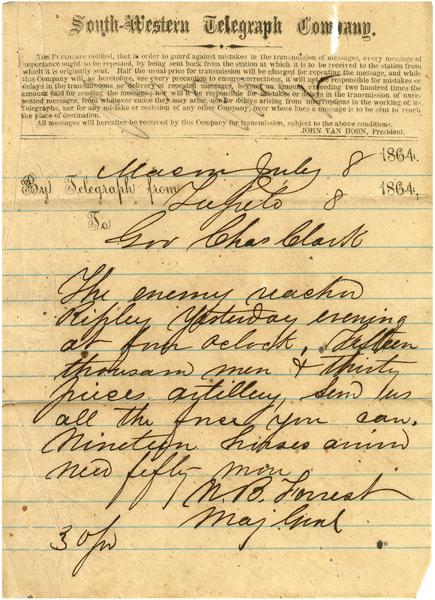 South-Western Telegraph Company.
THE PUBLIC are notified, that in order to guard against mistakes in the transmission of messages, every message of
importance ought to be repeated, by being sent back from the station at which it is to be received to the station from
which it is originally sent. Half the usual price for transmission will be charged for repeating the message, and while
this Company will, as heretofore, use every precaution to ensure correctness, it will not be responsible for mistakes or
delays in the transmission or delivery of repeated messages, beyond an amount exceeding two hundred times the
amount paid for sending the message; nor will it be responsible for mistakes or delays in the transmission of unre-
peated messages, from whatever cause they may arise, nor for delays arising from interruptions in the working of its
telegraphs, nor for any mistake or omission of any other Company, over whose lines a message is to be sent to reach
the place of destination.
All messages will hereafter be received by this Company for transmission, subject to the above conditions.
JOHN VAN HORN, President.
Macon July 8 1864.
By Telegraph from Tupelo 8 1864,
To
Gov Chas Clark
The enemy reached
Ripley Yesterday evening
at four oclock, fifteen
thousand men & thirty
pieces artillery, send us
all the force you can.
Nineteen horses arrived
need fifty more
N. B. Forrest
Maj Genl